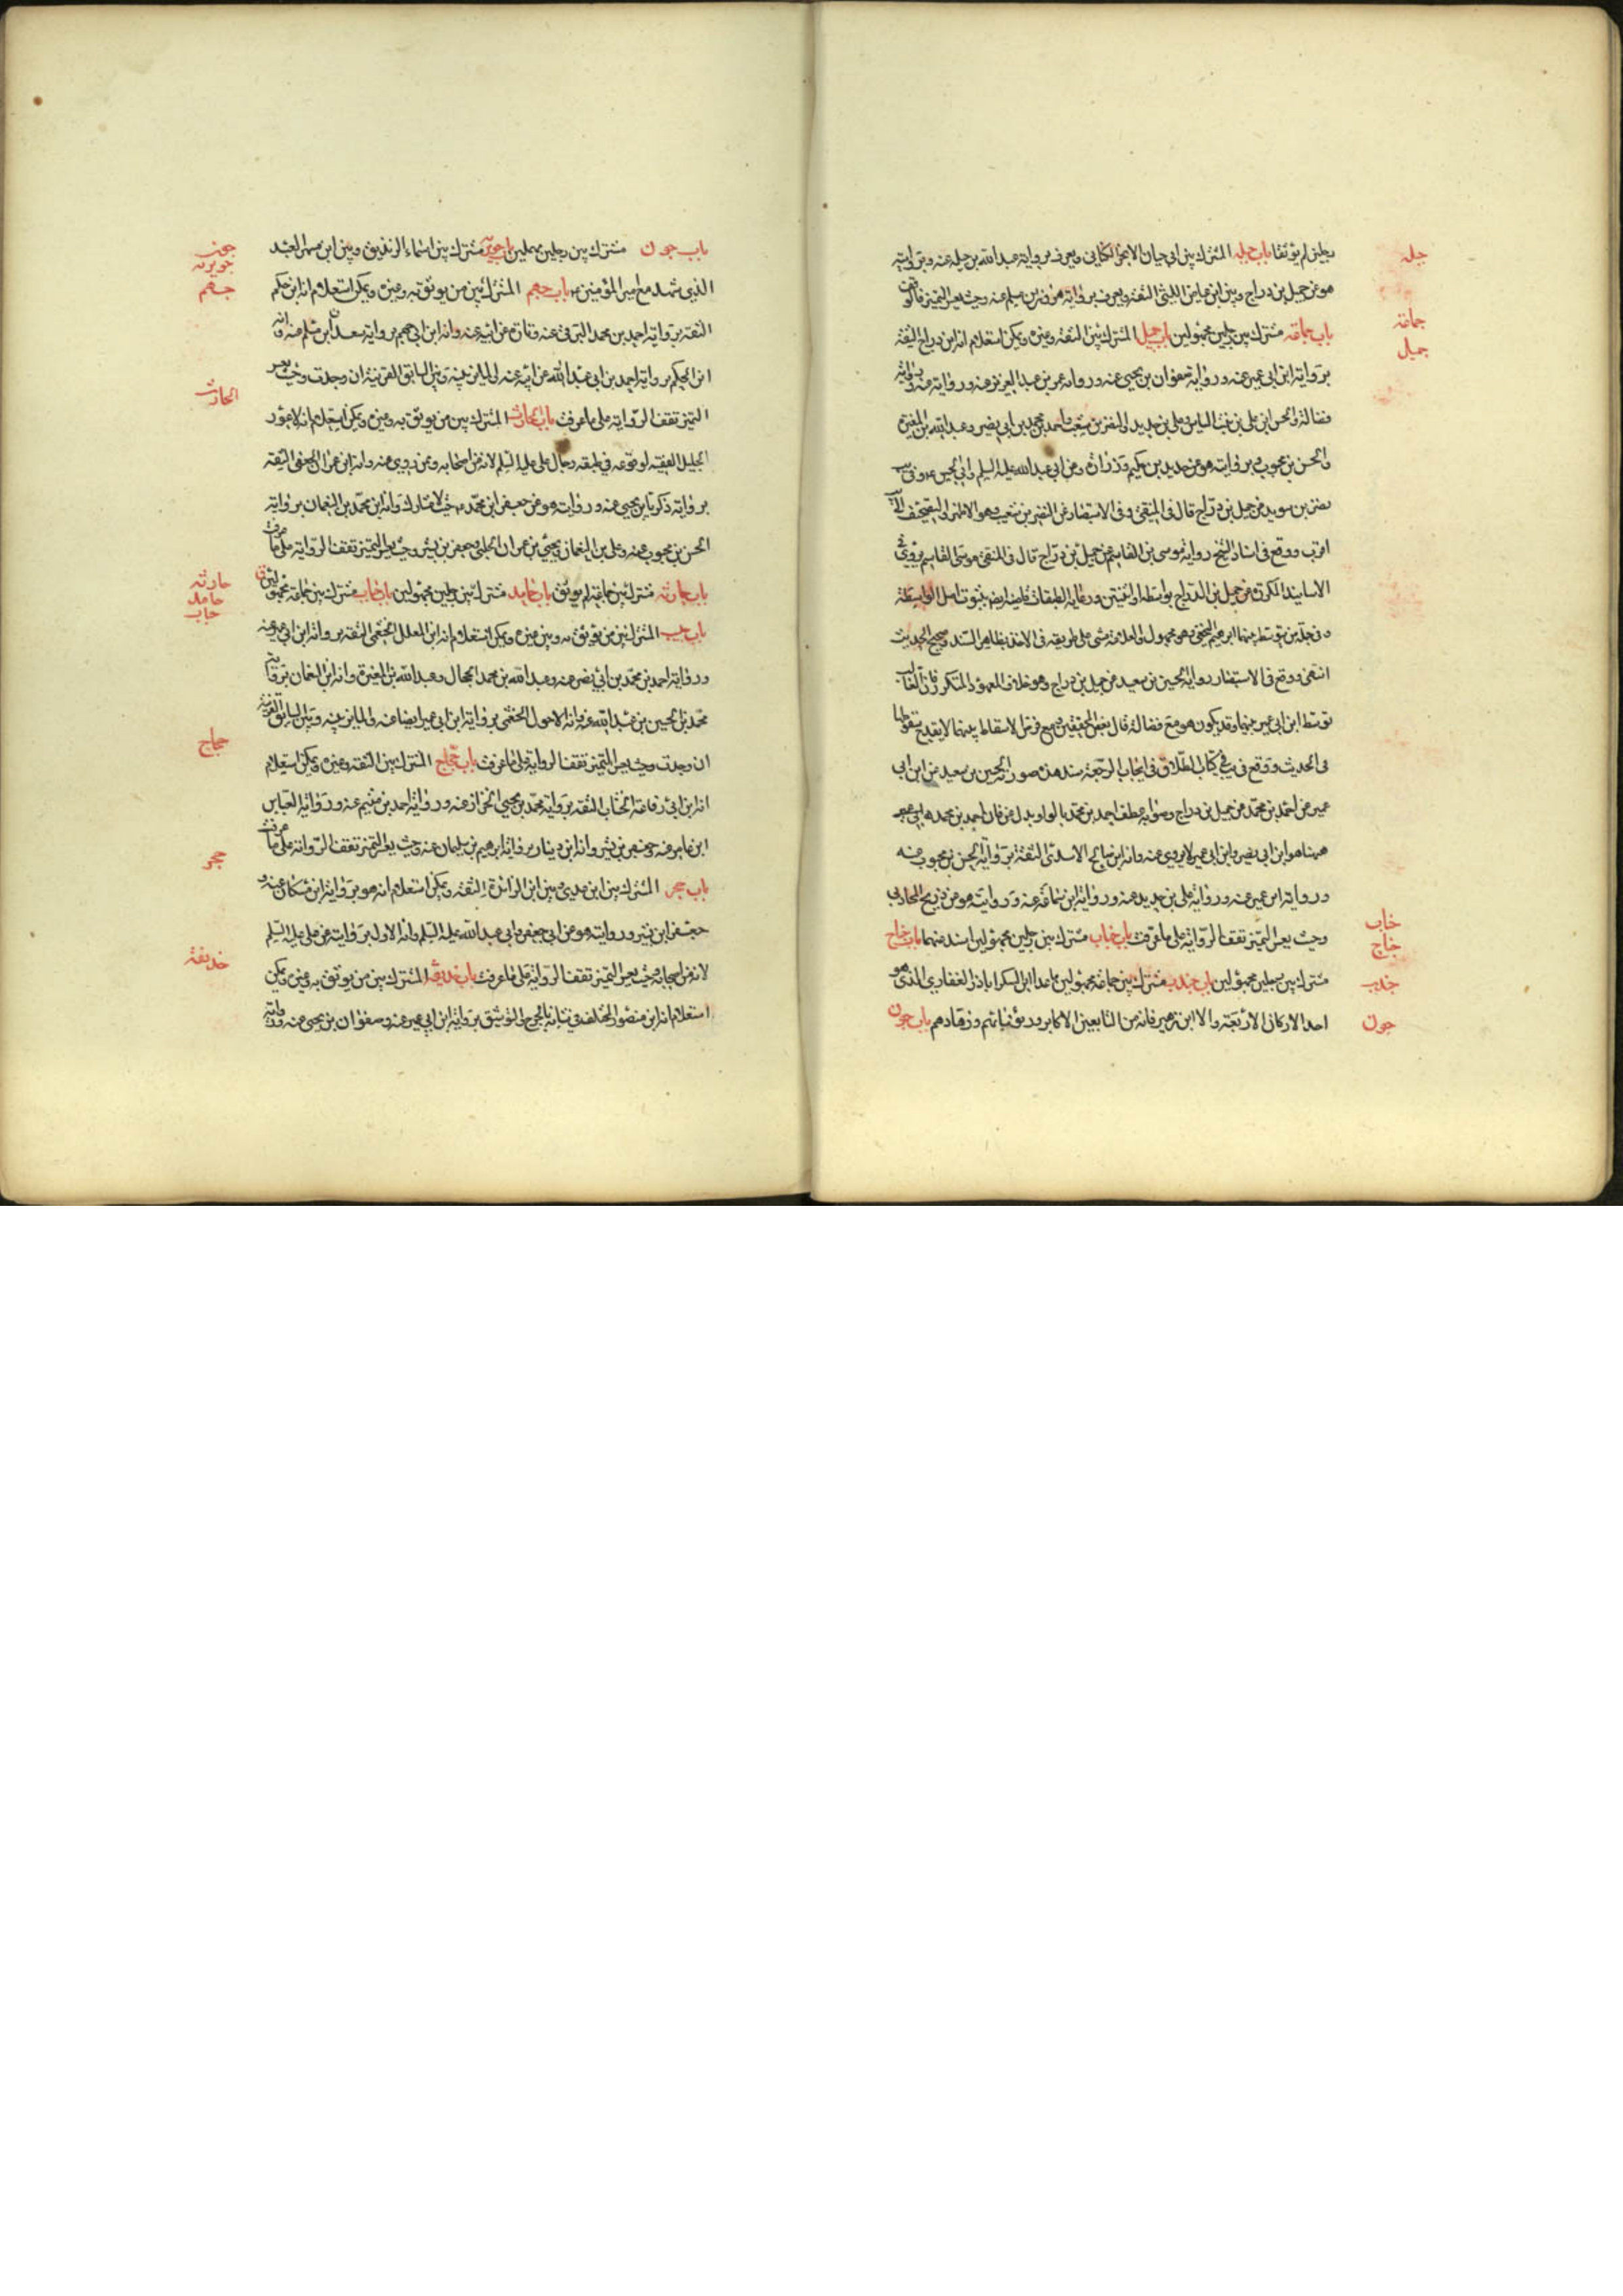 رجلين لم يوثقا باب جبلة المشترك بين ابي حيان الابجر الكناني ويعرف برواية عبد الله بن جبلة عنه وبروايته
جبلة
هو عن جميل بن دراج وبين ابن عياض الليثي الثقة ويعرف برواية هرون بن مسلم عنه وحيث يعسر التميز فالوقف
باب جماعة مشترك بين رجلين مجهولين باب جميل المشترك بين الثقة وغيره ويمكن استعلام انه ابن دراج الثقة
جماعة
جميل
برواية ابن ابي عمير عنه ورواية صفوان بن يحيى عنه ورواية عمر بن عبد العزيز عنه ورواية
فضالة والحسن ابن علي بن بنت الياس وعلي بن حديد والنضر بن شعيب واحمد بن محمد بن ابي نصر وعبد الله بن المغيرة
والحسن بن محبوب وبروايته هو عن حديد بن حكيم وزرارة وعن ابي عبد الله عليه السلم وابي الحسن
نضر بن سويد عن جميل بن دراج قال في المنتقى وفي الاستبصار عن النضر بن شعيب وهو الاظهر
اقرب ووقع في اسناد الشيخ رواية موسى بن القاسم عن جميل بن دراج قال في المنتقى موسى القاسم يروي في
الاسانيد المتكررة عن جميل بن الدراج بواسطة او اثنتين ورعاية الطبقات قاضية ايضا بثبوت اصل الواسطة
وفي عدة من توسط بينهما ابرهيم النخعي وهو مجهول والعلامة مشى على طريقته في الاخذ بظاهر السند وصحح الحديث
انتهى ووقع في الاستبصار رواية الحسين بن سعيد عن جميل بن دراج وهو خلاف المعهود المتكرر فان الغالب
توسط ابن ابي عمير بينهما وقد يكون هو مع فضالة قال بعض المحققين ومع فرض الاسقاط بينهما لا يقدح سقوطها
في الحديث ووقع في يج كتاب الطلاق في ايجاب الرجعة سند هذه صورته الحسين بن سعيد عن ابن ابي
عمير عن احمد بن محمد عن جميل بن دراج وصوابه عطف احمد بن محمد بالواو بدل عن فان احمد بن محمد
ههنا هو ابن ابي نصر وابن ابي عمير لا يروي عنه وانه ابن صالح الاسدي الثقة برواية الحسن بن محبوب عنه
ورواية ابن عمير عنه ورواية علي بن حديد عنه ورواية ابن سماعة عنه وروايته هو عن ذريح المحاربي
وحيث يعسر التميز تقف الرواية على ما عرفت باب خباب مشترك بين رجلين مجهولين اسند عنهما باب جناح
جناب
جناح
مشترك بين رجلين مجهولين باب جندب مشترك بين جماعة مجهولين ما عدا ابن السكن ابا ذر الغفاري الذي هو
جندب
احد الاركان الاربعة والا ابن زهير فانه من التابعين الاكابر ورؤسائهم وزهادهم باب جون
جون
باب جون مشترك بين رجلين مهملين باب جويرية مشترك بين اسماء الزنديق وبين ابن مسهر العبد
جون
جويرية
الذي شهد مع امير المؤمنين باب جهم المشترك بين من يوثق به وغيره ويمكن استعلام انه ابن حكم
جهم
الثقة برواية احمد بن محمد البرقي عنه وتارة عن ابيه عنه وانه ابن ابي جهم برواية سعدان بن مسلم عنه وانه
ابن الحكم برواية احمد بن ابي عبد الله عن ابيه عنه والمايز بينه وبين السابق القرينة ان وجدت وحيث يعسر
التميز تقف الرواية على ما عرفت باب الحارث المشترك بين من يوثق به وغيره ويمكن استعلام انه الاعور
الحارث
الجليل الفقيه لوقوعه في طبقة رجال علي عليه السلم لانه من اصحابه وممن روى عنه وانه ابن عمران الجعفي الثقة
برواية زكريا بن يحيى عنه وروايته هو عن جعفر ابن محمد حيث لا مشارك وانه ابن محمد بن النعمان برواية
الحسن بن محبوب عنه وعلي بن النعمان ويحيى بن عمران الحلبي وجعفر بن بشير وحيث يعسر التميز تقف الرواية على ما عرفت
باب حارثة مشترك بين جماعة لم يوثق باب حامد مشترك بين رجلين مجهولين باب حباب مشترك بين جماعة مجهولين
حارثة
حامد
حباب
باب حبيب المشترك بين من يوثق به وبين غيره ويمكن استعلام انه ابن المعلل الخثعمي الثقة برواية ابن ابي عمير عنه
ورواية احمد بن محمد بن ابي نصر عنه وعبد الله بن محمد الحجال وعبد الله بن المغيرة وانه ابن النعمان برواية
محمد بن الحسين بن عبد الله عنه وانه الاحول الخثعمي برواية ابن ابي عمير ايضا عنه والمايز بينه وبين السابق القرينة
ان وجدت وحيث يعسر التميز تقف الرواية على ما عرفت باب حجاج المشترك بين الثقة وغيره ويمكن استعلام
حجاج
انه ابن ابي رفاعة الخشاب الثقة برواية محمد بن يحيى الخزاز عنه ورواية احمد بن ميثم عنه ورواية العباس
ابن عامر عنه وجعفر بن بشير وانه ابن دينار برواية ابرهيم بن سليمان عنه وحيث يعسر التميز تقف الرواية على ما عرفت
باب حجر المشترك بين ابن عدي وبين ابن الزائدة الثقة ويمكن استعلام انه هو برواية ابن مسكان عنه و
حجر
جعفر ابن بشير وروايته هو عن ابي جعفر وابي عبد الله عليه السلم وانه الاول بروايته عن علي عليه السلم
لانه من اصحابه وحيث يعسر التميز تقف الرواية على ما عرفت باب حذيفة المشترك بين من يوثق به وغيره ويمكن
حذيفة
استعلام انه ابن منصور المختلف في شانه بالجرح والتوثيق برواية ابن ابي عمير عنه وصفوان بن يحيى عنه ورواية